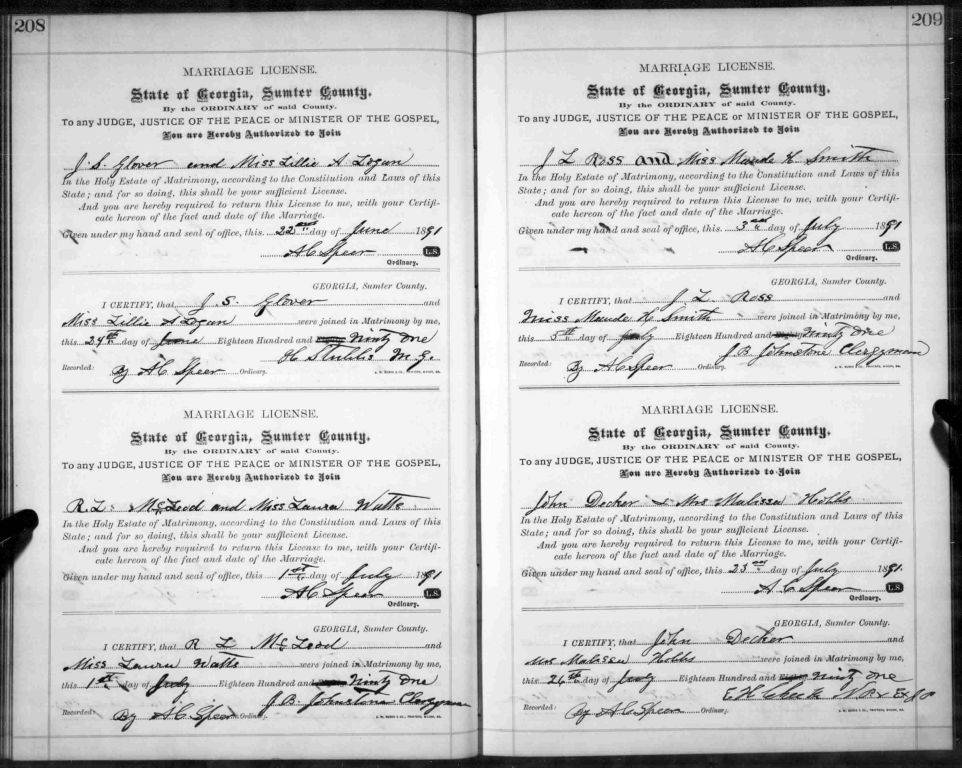 208
MARRIAGE LICENSE.
State of Georgia, Sumter County.
By the ORDINARY of said County.
To any JUDGE, JUSTICE OF THE PEACE or MINISTER OF THE GOSPEL,
You are Hereby Authorized to Join
J. S. Glover and Miss Lillie A Logan
In the Holy Estate of Matrimony, according to the Constitution and Laws of this
State; and for so doing, this shall be your sufficient License.
And you are hereby required to return this License to me, with your Certifi-
cate hereon of the fact and date of the Marriage.
Given under my hand and seal of office, this 22nd day of June 1891
A C Speer L.S.
Ordinary.
GEORGIA, Sumter County.
I CERTIFY, that J. S. Glover and
Miss Lillie A Logan were joined in Matrimony by me,
this 24th day of June Eighteen Hundred and Ninty One
M.G.
Recorded: By A C Speer Ordinary.
MARRIAGE LICENSE.
State of Georgia, Sumter County.
By the ORDINARY of said County.
To any JUDGE, JUSTICE OF THE PEACE or MINISTER OF THE GOSPEL,
You are Hereby Authorized to Join
R. L. McLeod and Miss Laura Watts
In the Holy Estate of Matrimony, according to the Constitution and Laws of this
State; and for so doing, this shall be your sufficient License.
And you are hereby required to return this License to me, with your Certifi-
cate hereon of the fact and date of the Marriage.
Given under my hand and seal of office, this 1st day of July 1891
A C Speer L.S.
Ordinary.
GEORGIA, Sumter County.
I CERTIFY, that R L McLeod and
Miss Laura Watts were joined in Matrimony by me,
this 1st day of July Eighteen Hundred and Ninty One
J. B. Johnstone Clergyman
Recorded: By A C Speer Ordinary.
209
MARRIAGE LICENSE.
State of Georgia, Sumter County.
By the ORDINARY of said County.
To any JUDGE, JUSTICE OF THE PEACE or MINISTER OF THE GOSPEL,
You are Hereby Authorized to Join
J L Ross and Miss Maude H. Smith
In the Holy Estate of Matrimony, according to the Constitution and Laws of this
State; and for so doing, this shall be your sufficient License.
And you are hereby required to return this License to me, with your Certifi-
cate hereon of the fact and date of the Marriage.
Given under my hand and seal of office, this 3rd day of July 1891
A C Speer L.S.
Ordinary.
GEORGIA, Sumter County.
I CERTIFY, that J L Ross and
Miss Maude H Smith were joined in Matrimony by me,
this 5th day of July Eighteen Hundred and Ninty One
J B Johnstone Clergyman
Recorded: By A C Speer Ordinary.
MARRIAGE LICENSE.
State of Georgia, Sumter County.
By the ORDINARY of said County.
To any JUDGE, JUSTICE OF THE PEACE or MINISTER OF THE GOSPEL,
You are Hereby Authorized to Join
John Decker & Mrs Malissa Hobbs
In the Holy Estate of Matrimony, according to the Constitution and Laws of this
State; and for so doing, this shall be your sufficient License.
And you are hereby required to return this License to me, with your Certifi-
cate hereon of the fact and date of the Marriage.
Given under my hand and seal of office, this 23rd day of July 1891.
A. C. Speer L.S.
Ordinary.
GEORGIA, Sumter County.
I CERTIFY, that John Decker and
Mrs Malissa Hobbs were joined in Matrimony by me,
this 26th day of July Eighteen Hundred and Ninty One
E. H.
Recorded: By A C Speer Ordinary.